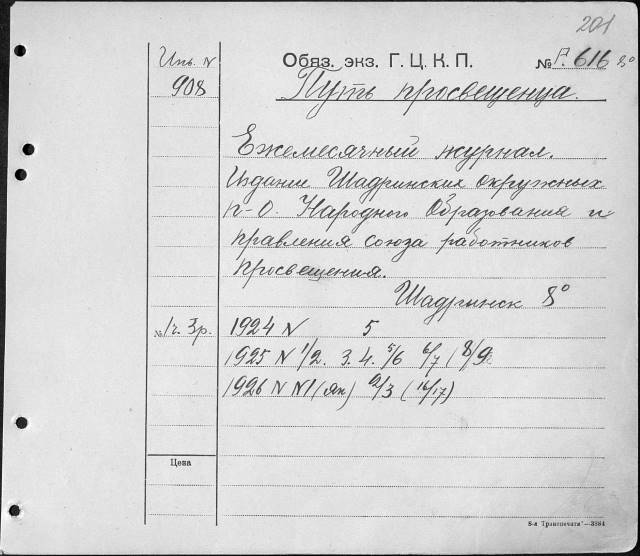 201
Инв. N
908
Обяз. экз. Г. Ц. К. П.
№ Р. 616 8°
Путь просвещенца.
Ежемесячный журнал.
Издание Шадринских окружных
п-О. Народного Образования и
правления союза работников
просвещения.
Шадринск 8°
1924 N 5
1925 N 1/2. 3. 4. 5/6 6/7 (8/9)
1926 N N1 (ян) 2/3 (16/17)
Цена
8-я Транспечати"—3884